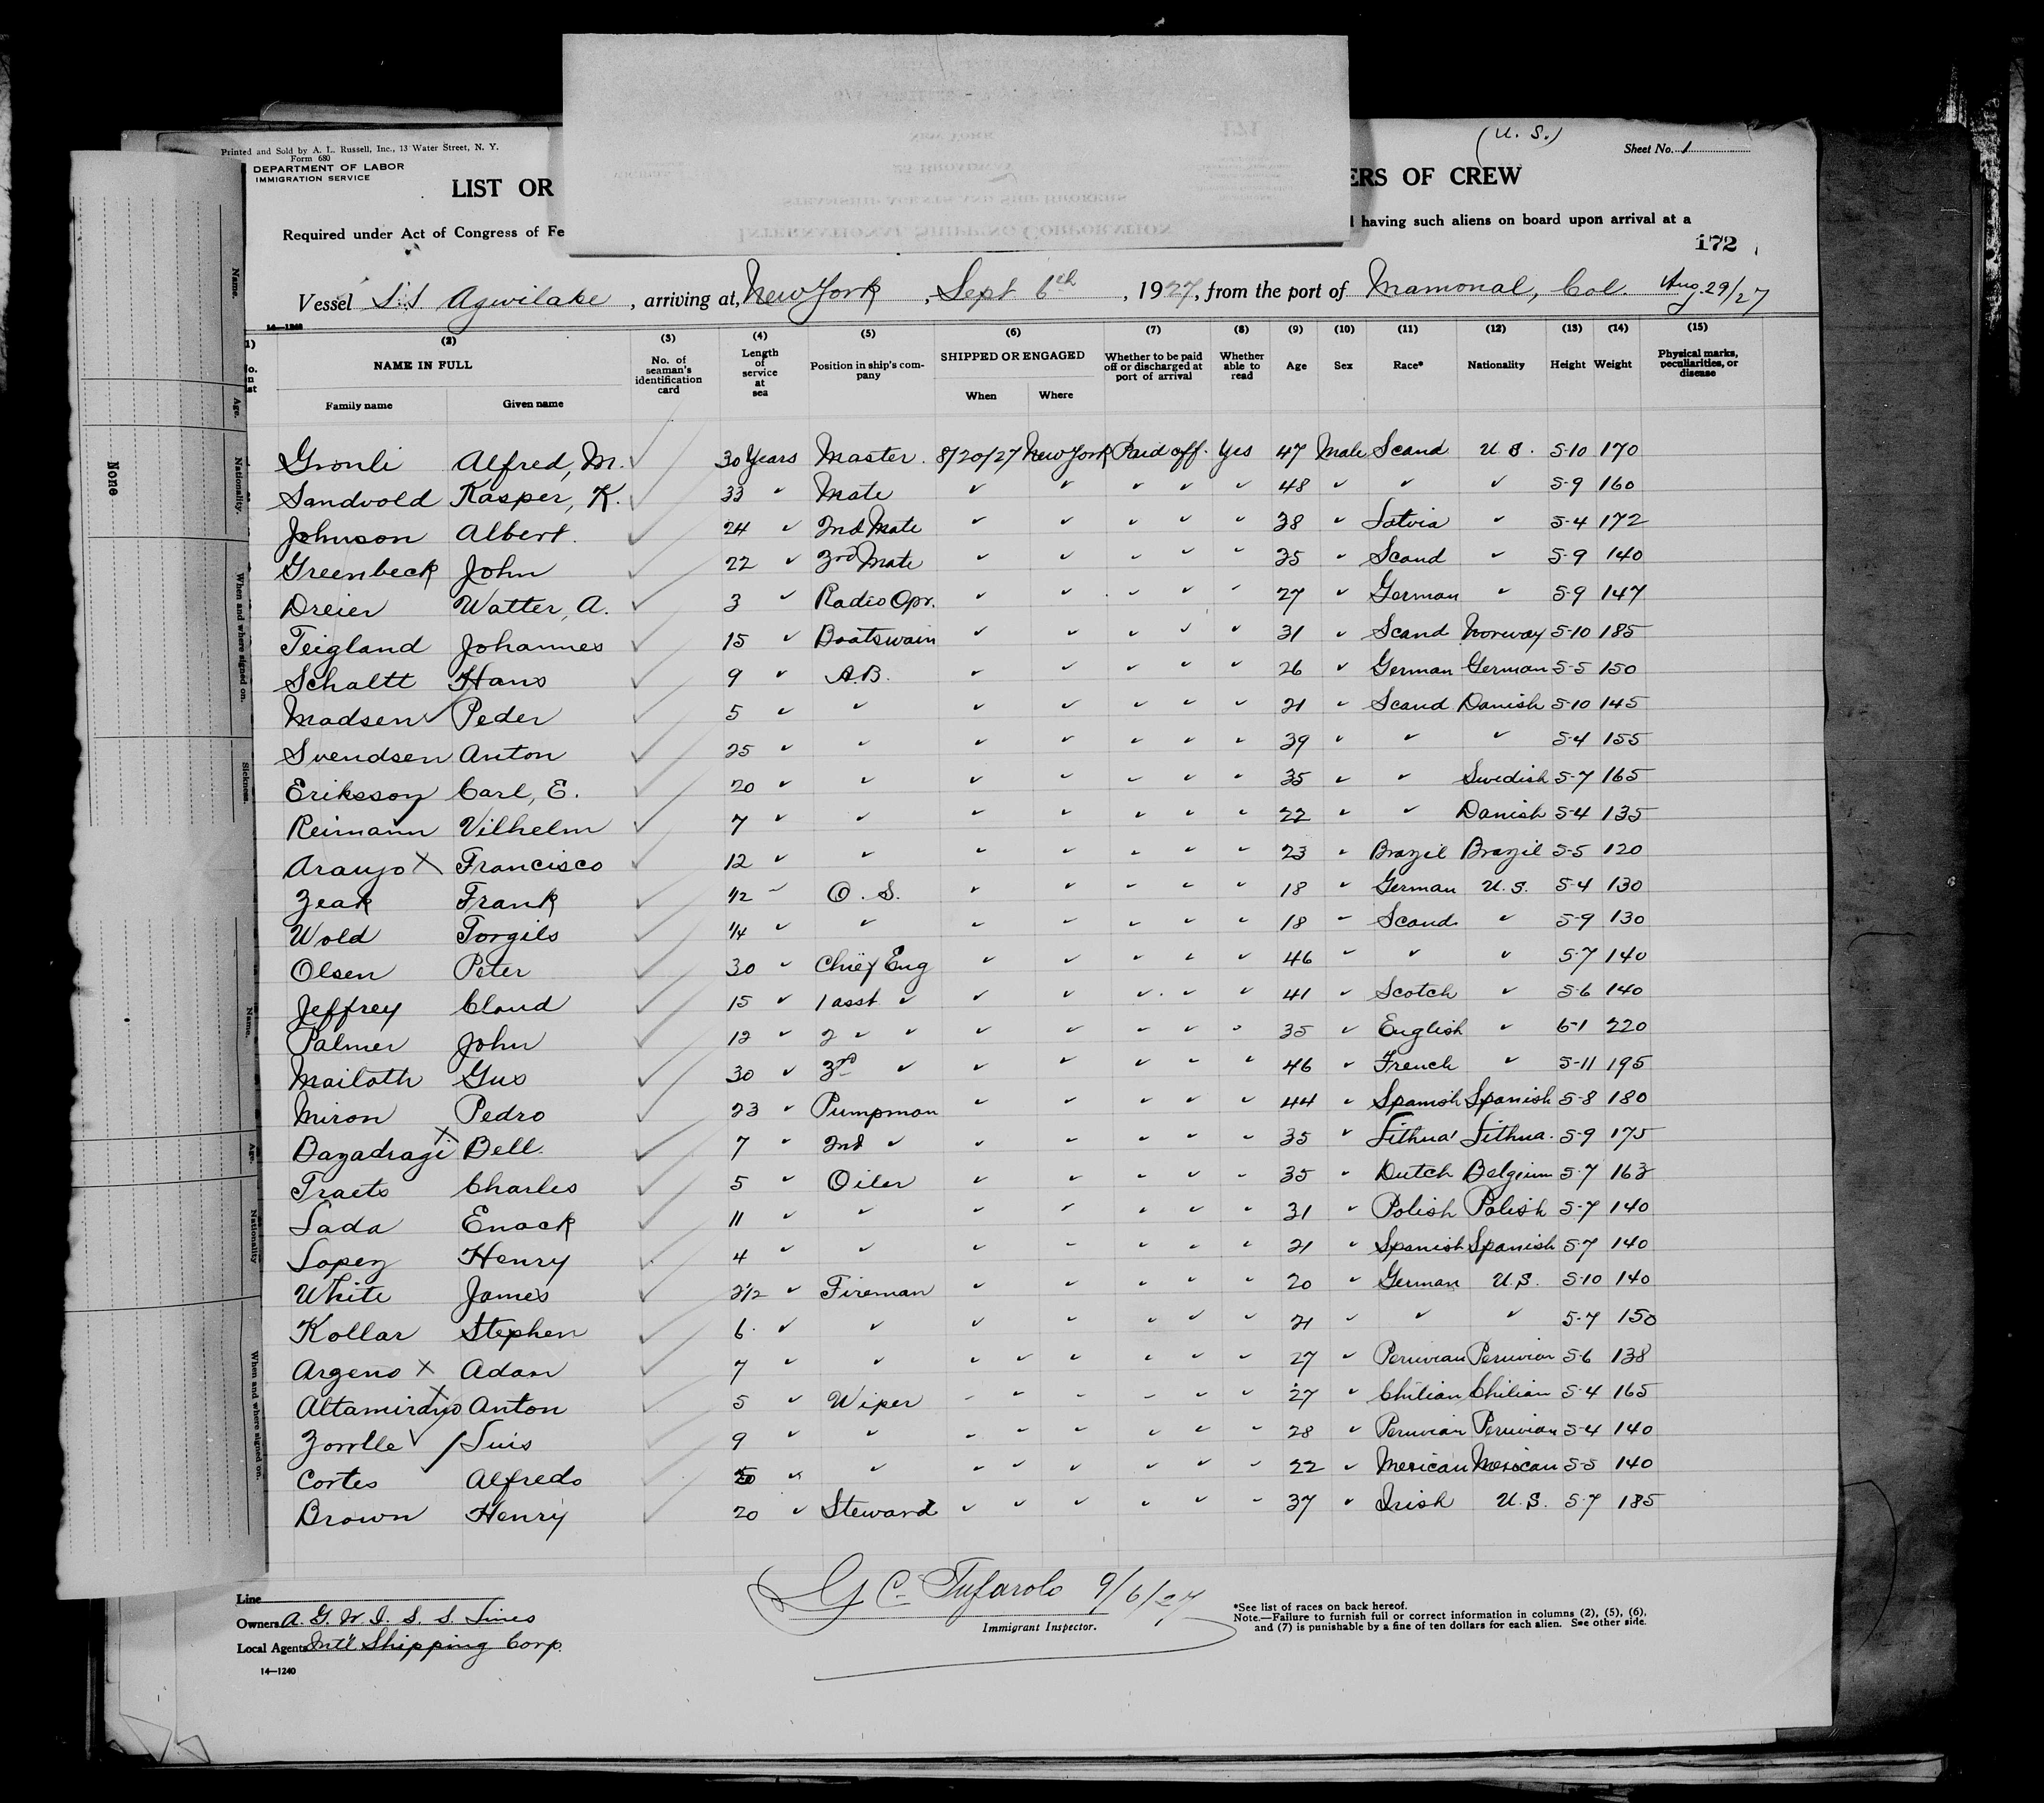 Printed and Sold by A. L. Russell, Inc., 13 Water Street, N. Y.
Form 680
DEPARTMENT OF LABOR
IMMIGRATION SERVICE
(U. S.)
Sheet No. 1
LIST OR ERS OF CREW
Required under Act of Congress of Fe having such aliens on board upon arrival at a
172
INTERNATIONAL SHIPPING CORPORATION
STEAMSHIP AGENTS AND SHIP BROKERS
25 BROADWAY
NEW YORK
Vessel S.S Agwilake, arriving at, New York, Sept 6th, 1927, from the port of Mamonal, Col. Aug. 29/27
14—1240
(2) (3) (4) (5) (6) (7) (8) (9) (10) (11) (12) (13) (14) (15)
NAME IN FULL No. of seaman's identification card Length of service at sea Position in ship's company SHIPPED OR ENGAGED Whether to be paid off or discharged at port of arrival Whether able to read Age Sex Race* Nationality Height Weight Physical marks, peculiarities, or disease
Family name Given name When Where
Gronli Alfred, M. 30 Years Master. 8/20/27 New York Paid off. Yes 47 Male Scand U.S. 5-10 170
Sandvold Kasper, K. 33 " Mate " " " " " 48 " " " 5-9 160
Johnson Albert. 24 " 2nd Mate " " " " " 38 " Latvia " 5-4 172
Greenbeck John 22 " 3rd Mate " " " " " 35 " Scand " 5-9 140
Dreier Walter, A. 3 " Radio Opr. " " " " " 27 " German " 5-9 147
Teigland Johannes 15 " Boatswain " " " " " 31 " Scand Norway 5-10 185
Schaltt Hans 9 " A.B. " " " " " 26 " German German 5-5 150
Madsen Peder 5 " " " " " " " 21 " Scand Danish 5-10 145
Svendsen Anton 25 " " " " " " " 39 " " " 5-4 155
Eriksson Carl, E. 20 " " " " " " " 35 " " Swedish 5-7 165
Reimann Vilhelm 7 " " " " " " " 22 " " Danish 5-4 135
Araujo X Francisco 12 " " " " " " " 23 " Brazil Brazil 5-5 120
Zeak Frank 1/2 " O. S. " " " " " 18 " German U.S. 5-4 130
Wold Torgils 1/4 " " " " " " " 18 " Scand " 5-9 130
Olsen Peter 30 " Chief Eng " " " " " 46 " " " 5-7 140
Jeffrey Claud 15 " 1 asst " " " " " " 41 " Scotch " 5-6 140
Palmer John 12 " 2 " " " " " " " 35 " English " 6-1 220
Mailoth Gus 30 " 3rd " " " " " " 46 " French " 5-11 195
Miron Pedro 23 " Pumpman " " " " " 44 " Spanish Spanish 5-8 180
Bazadragi X Bell. 7 " 2nd " " " " " " 35 " Lithua' Lithua. 5-9 175
Traets Charles 5 " Oiler " " " " " 35 " Dutch Belgium 5-7 163
Lada Enock 11 " " " " " " " 31 " Polish Polish 5-7 140
Lopez Henry 4 " " " " " " " 21 " Spanish Spanish 5-7 140
White James 2 1/2 " Fireman " " " " " 20 " German U.S. 5-10 140
Kollar Stephen 6 " " " " " " " 21 " " " 5-7 150
Argeno X Adan 7 " " " " " " " " 27 " Peruvian Peruvian 5-6 138
X Anton 5 " Wiper " " " " " " 27 " Chilian Chilian 5-4 165
Luis 9 " " " " " " " " 28 " Peruvian Peruvian 5-4 140
Cortes Alfredo " " " " " " " " 22 " Mexican Mexican 5-5 140
Brown Henry 20 " Steward " " " " " " 37 " Irish U.S. 5-7 185
Line
Owners A. G. W. I. S. S. Lines
Local Agents Int'l Shipping Corp.
14—1240
G C Tufarolo 9/6/27
Immigrant Inspector.
*See list of races on back hereof.
Note.—Failure to furnish full or correct information in columns (2), (5), (6),
and (7) is punishable by a fine of ten dollars for each alien. See other side.
Name.
Age.
Nationality.
When and where signed on.
Sickness.
None
Name.
Age.
Nationality
When and where signed on.